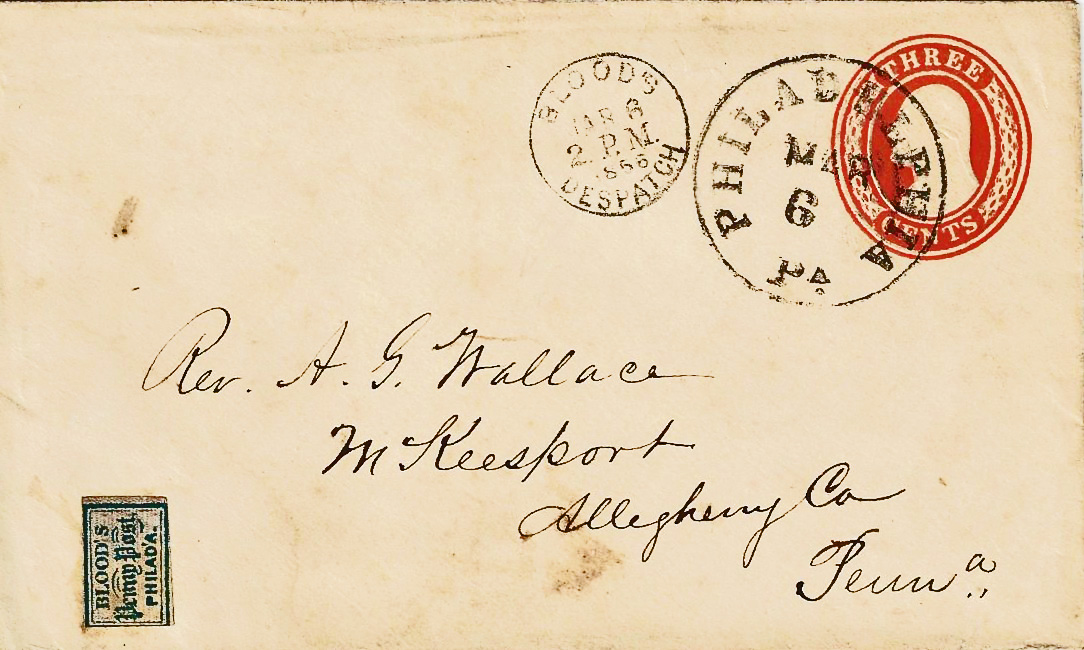 BLOOD'S
MAR 6
2 P.M.
1856
DESPATCH
PHILADELPHIA
MAR
6
PA
THREE
CENTS
Rev. A. G. Wallace
McKeesport
Allegheny Co
Penn a
BLOOD'S
Penny Post
PHILAD'A.